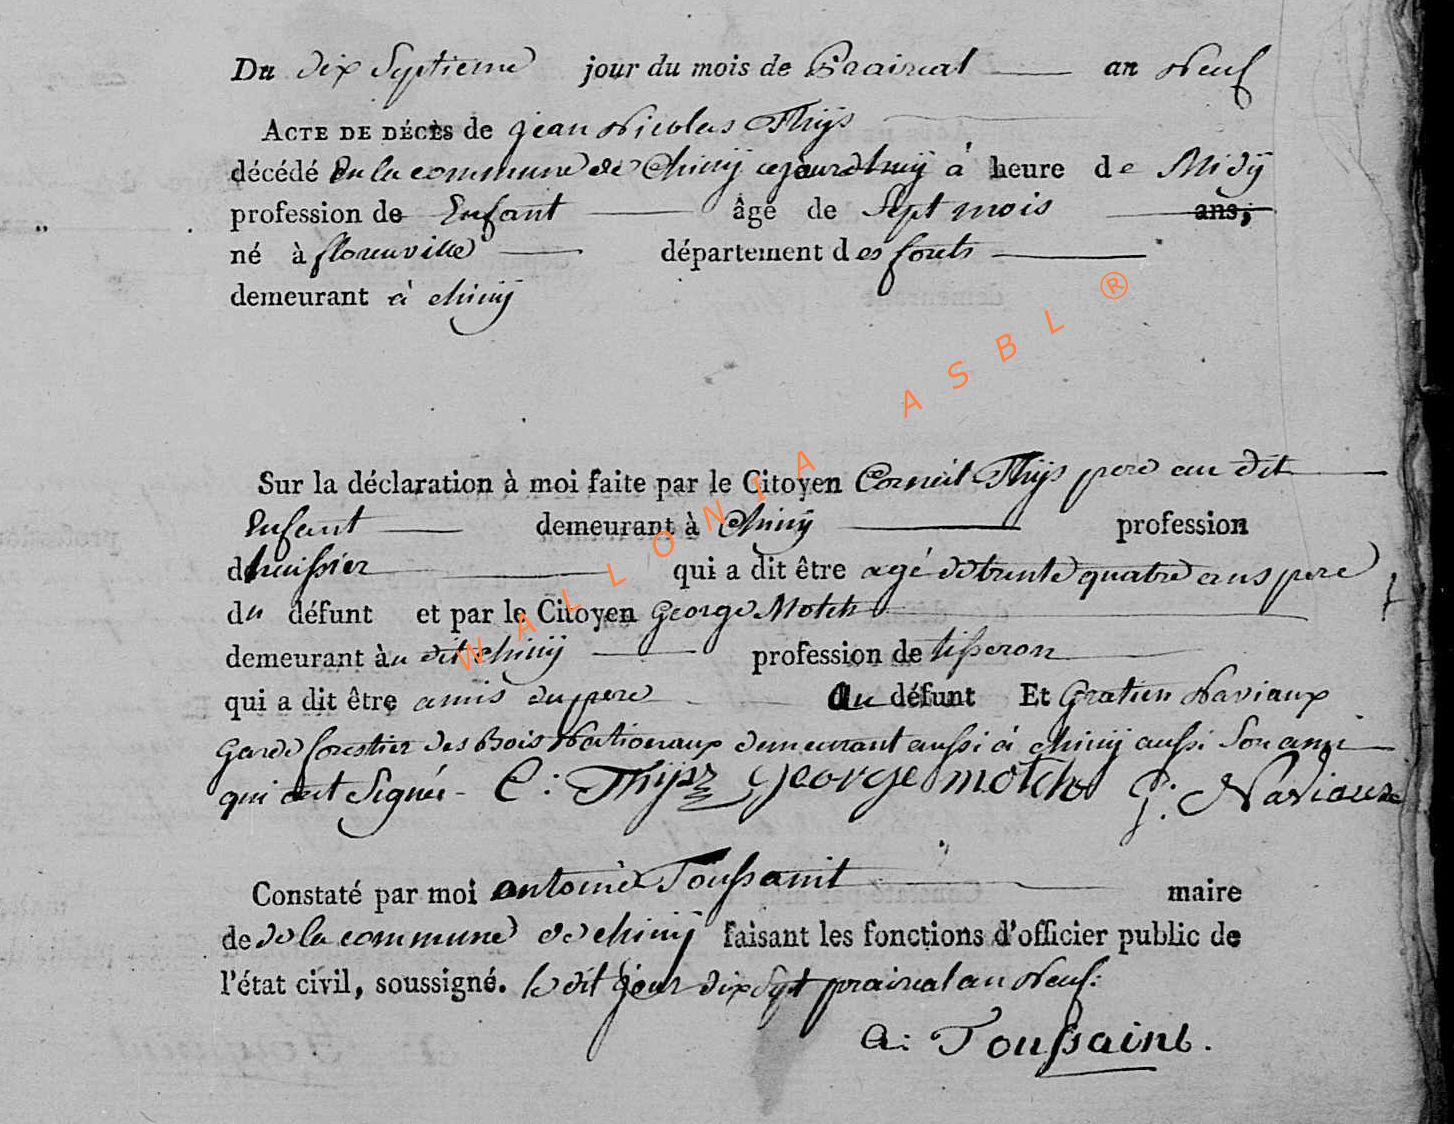 Du dix Septieme jour du mois de Prairial an Neuf
ACTE DE DÉCÈS de jean Nicolas Thijs
décédé En la commune de Chinij cejourdhuij à heure de Midij
profession de Enfant âge de Sept mois ans,
né à florenville département des forets
demeurant à chinij
Sur la déclaration à moi faite par le Citoyen Corneil Thijs pere au dit
Enfant demeurant à Chinij profession
dhuissier qui a dit être agé de trente quatre ans pere
du défunt et par le Citoyen George Motch
demeurant àu dit chinij profession de tisseron
qui a dit être amis du pere du défunt Et Gratien Naviaux
Garde forestier des Bois Nationaux demeurant aussi à chinij aussi Son ami
qui ont Signés - C: Thijs George motch G: Naviaux
Constaté par moi antoine Toussaint maire
de de la commune de chinij faisant les fonctions d'officier public de
l'état civil, soussigné. le dit jour dix Sept prairial an Neuf:
a: Toussaint.
WALLONIA ASBL ®